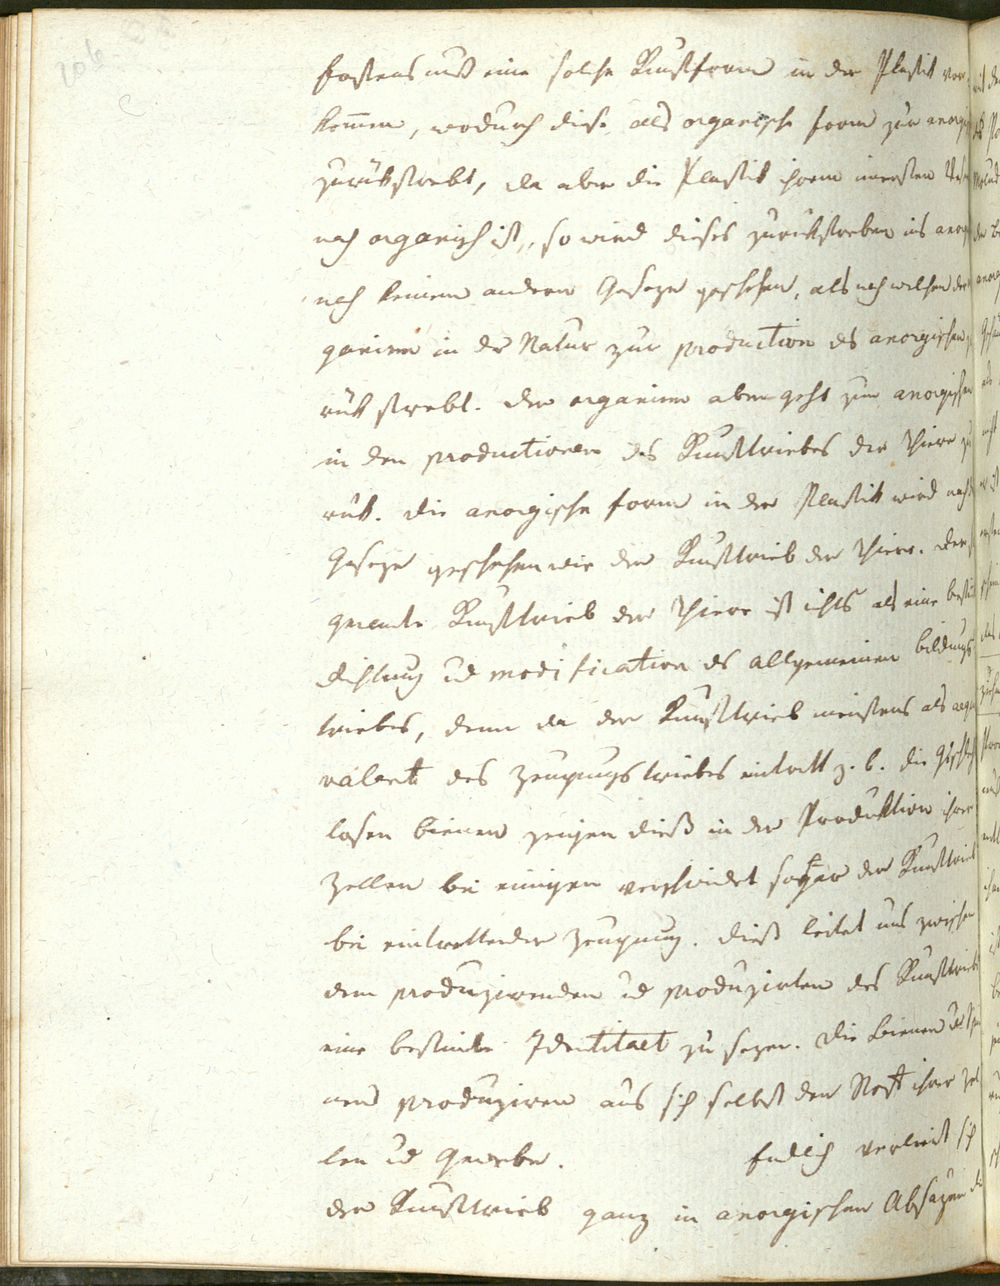 206
erstens muß eine solche Kunstform in der Plastik vor-
kom̄en, wodurch diese als organische form zur anorgi
zurükstrebt, da aber die Plastik ihrem innersten Wesen
nach organisch ist, so wird dieses zurükstreben ins anorg
nach keinem andern Geseze geschehen, als nach welchem der
ganism in der Natur zur production des anorgischen
rük strebt. Der organism aber geht zum anorgischen
in den productionen des Kunsttriebes der Thiere zu
rük. Die anorgische form in der Plastik wird nach
Geseze geschehen wie der Kunsttrieb der Thiere. Der
genante Kunsttrieb der Thiere ist nichts als eine bestim
Richtung und modification des allgemeinen bildungs
triebes, denn da der Kunsttrieb meistens als aequi
valent des Zeugungstriebes eintritt z. b. die Geschlecht
losen bienen zeigen dieß in der Produktion ihrer
Zellen bei einigen verschwindet sogar der Kunsttrieb
bei eintrettender Zeugung. Dieß leitet uns zwischen
dem produzirenden ud produzirten des Kunsttriebs
eine bestimte Identitaet zu sezen. Die bienen ud Spin
nen produziren aus sich selbst den Stoff ihrer Zel
len ud Gewebe. Endlich verliert sich
der Kunsttrieb ganz in anorgischen Absäzen die